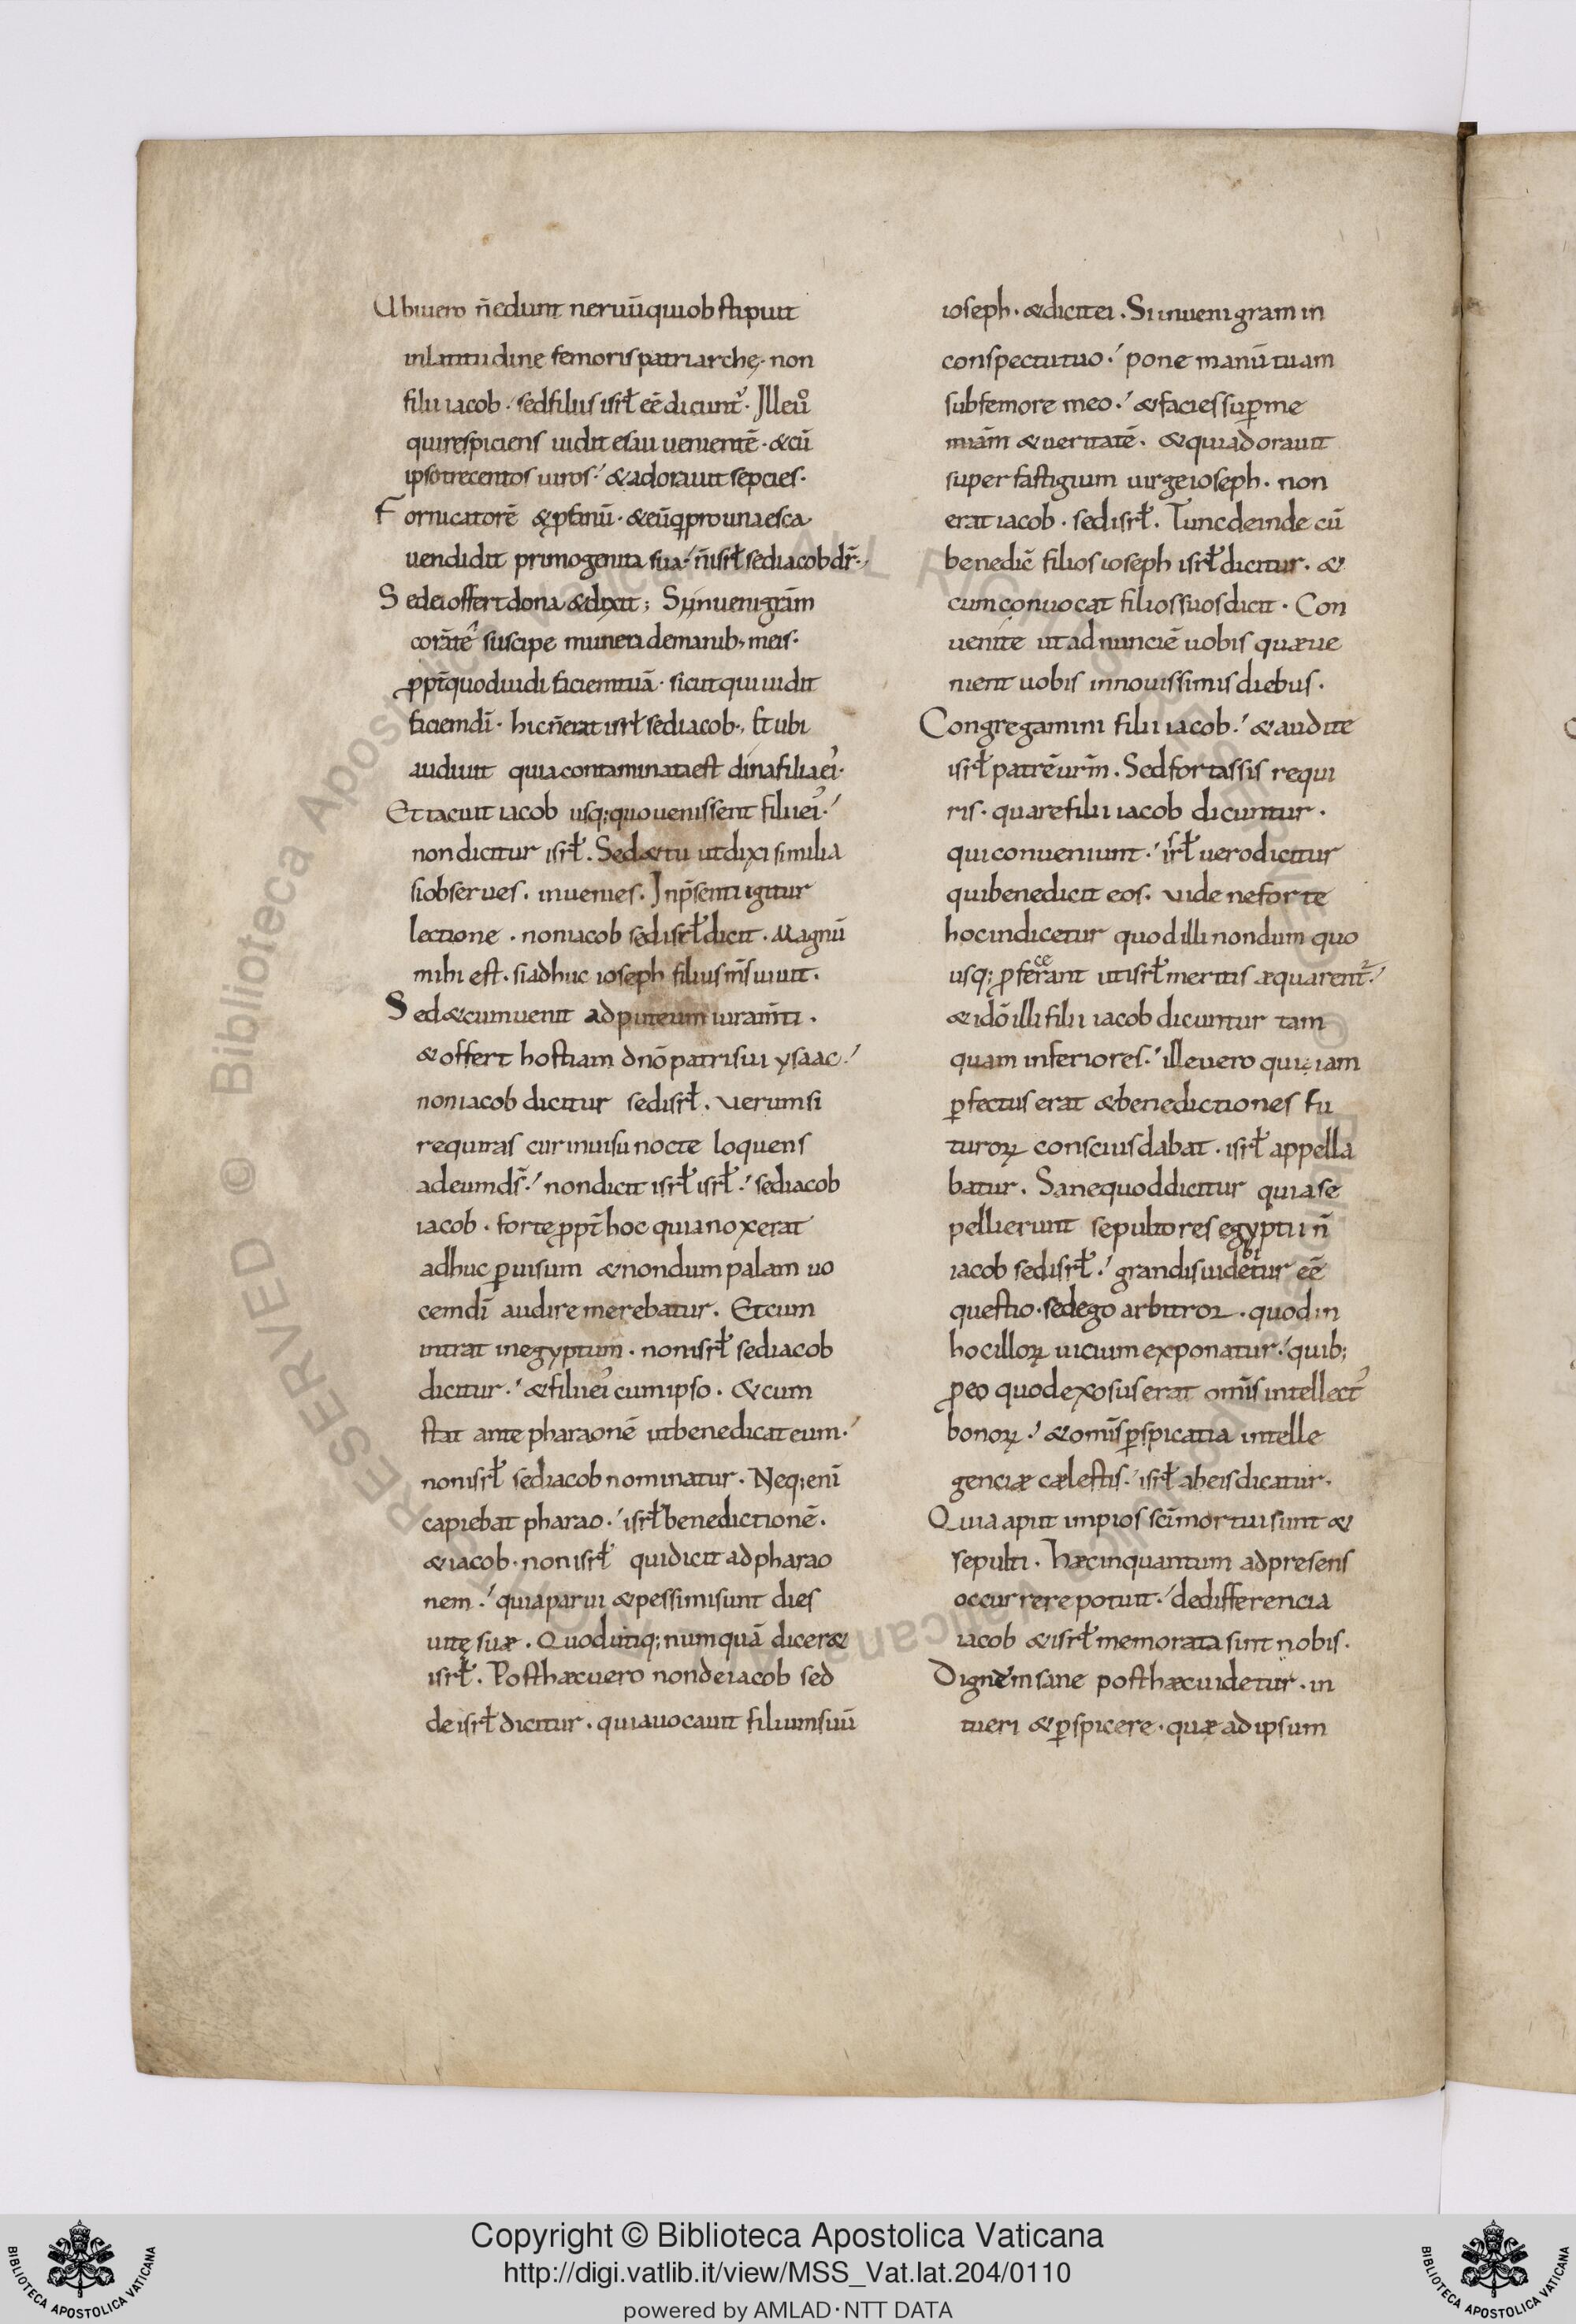 Ubiuero n̄edunt neruūquiobstipuit
inlatitudine femorispatriarchę· non
filii iacob· sedfilius isrł eē dicunt᷒· Illeuº
quirespiciens uidit esau uenientē· &cū
ipsotrecentos uiros·' &adorauit sepcies·
Fornicatorē &ꝓfanū· &eūq̇prounaesca
uendidit primogenita sua·' n̄isrł sediacobdr̄·,
Sedeioffertdona &dixit; Siinuenigrām
corāte᾽ suscipe munera demanib; meis·
ꝓpt̄quoduidi faciemtuā· sicutqui uidit
faciemdī· hicn̄erat isrł sediacob·, Et ubi
audiuit quiacontaminataest dinafiliaei᾽·
Ettacuit iacob usq;quouenissent filiiei᾽·'
nondicitur isrł. Sed&tu utdixi similia
siobserues. inuenies. Inp̄senti igitur
lectione· noniacob sedisrł dicit· Magnū
mihi est· siadhuc ioseph filiusm̄s uiuit·
Sed&cumuenit adputeum iuram̄ti·
&offert hostiam dn̄o patrisiui ysaac·'
noniacob dicitur sedisrł. uerumsi
requiras curinuisu nocte loquens
adeumds̄·' nondicit isrł isrł·' sediacob
iacob· forteꝓpt̄ hoc quianoxerat
adhuc ꝑuisum &nondumpalam uo
cemdī audiremerebatur. Etcum
intrat inegyptum· nonisrł sediacob
dicitur·' &filiiei᾽ cumipso· &cum
stat ante pharaonē utbenedicateum·'
nonisrł sediacob nominatur· Neq;enī
capiebat pharao·' isrł benedictionē·
&iacob· nonisrł quidicit adpharao
nem·' quiaparui &pessimisunt dies
uitę suæ· Quodutiq; numquā dicer&
isrł. Posthæcuero nondeiacob sed
deisrł dicitur· quiauocauit filiumsuū
ioseph· &dicitei· Siinuenigram in
conspectutuo·' pone manūtuam
subfemore meo·' &faciessuꝑme
miām &ueritatē· &quiadorauit
super fastigium uirgeioseph· non
erat iacob· sedisrł. Tuncdeinde cū
benedic̄ filiosioseph isrł dicitur· &
cumconuocat filiossuosdicit· Con
uenite utadnunciē uobis quæue
nient uobis innouissimisdiebus·
Congregamini filii iacob·' &audite
isrł patrēurm̄. Sedfortassis requi
ris· quarefilii iacob dicuntur·
quiconueniunt·' isrł uerodicitur
quibenedicit eos· uide neforte
hocindicetur quodilli nondum quo
usq; ꝓferrant utisrł meritis æquarent᷒·'
&idō illi filii iacob dicuntur tam
quam inferiores·' illeuero qui iam
ꝑfectus erat &benedictiones fu
turoꝝ consciusdabat· isrł appella
batur· Sanequoddicitur quiase
pellierunt sepultores egyptii n̄
iacob sedisrł·' grandisuidetur eē
questio· sedego arbitror· quodin
hocilloꝝ uicium exponatur·' quib;
ꝓeo quodexosuserat omīs intellect᾽
bonoꝝ·' &omīs ꝑspicatia intelle
genciæ cælestis·' isrł abeisdicatur·
Quia aput impios scīmortuisunt &
sepulti· Hæcinquantum adpresens
occurrere potuit·' dedifferencia
iacob &isrł memorata sint nobis·
Dignēm sane posthæcuidetur· in
tueri &ꝑspicere· quæ adipsum
Copyright © Biblioteca Apostolica Vaticana
http://digi.vatlib.it/view/MSS_Vat.lat.204/0110
powered by AMLAD·NTT DATA